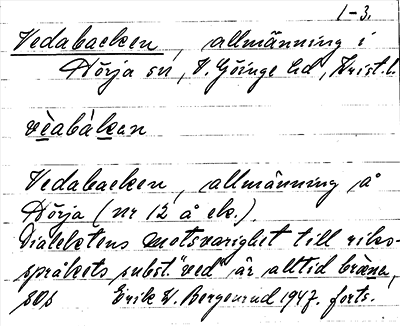 1-3.
Vedabacken, allmänning i
Hörja sn, V. Göinge hd, Krist. l.
vèabàkan
Vedabacken, allmänning å
Hörja (nr 12 å ek.).
Dialektens motsvarighet till riks-
språkets subst. "ved" är alltid bräna,
sos Erik W. Bergenrud 1947. forts.